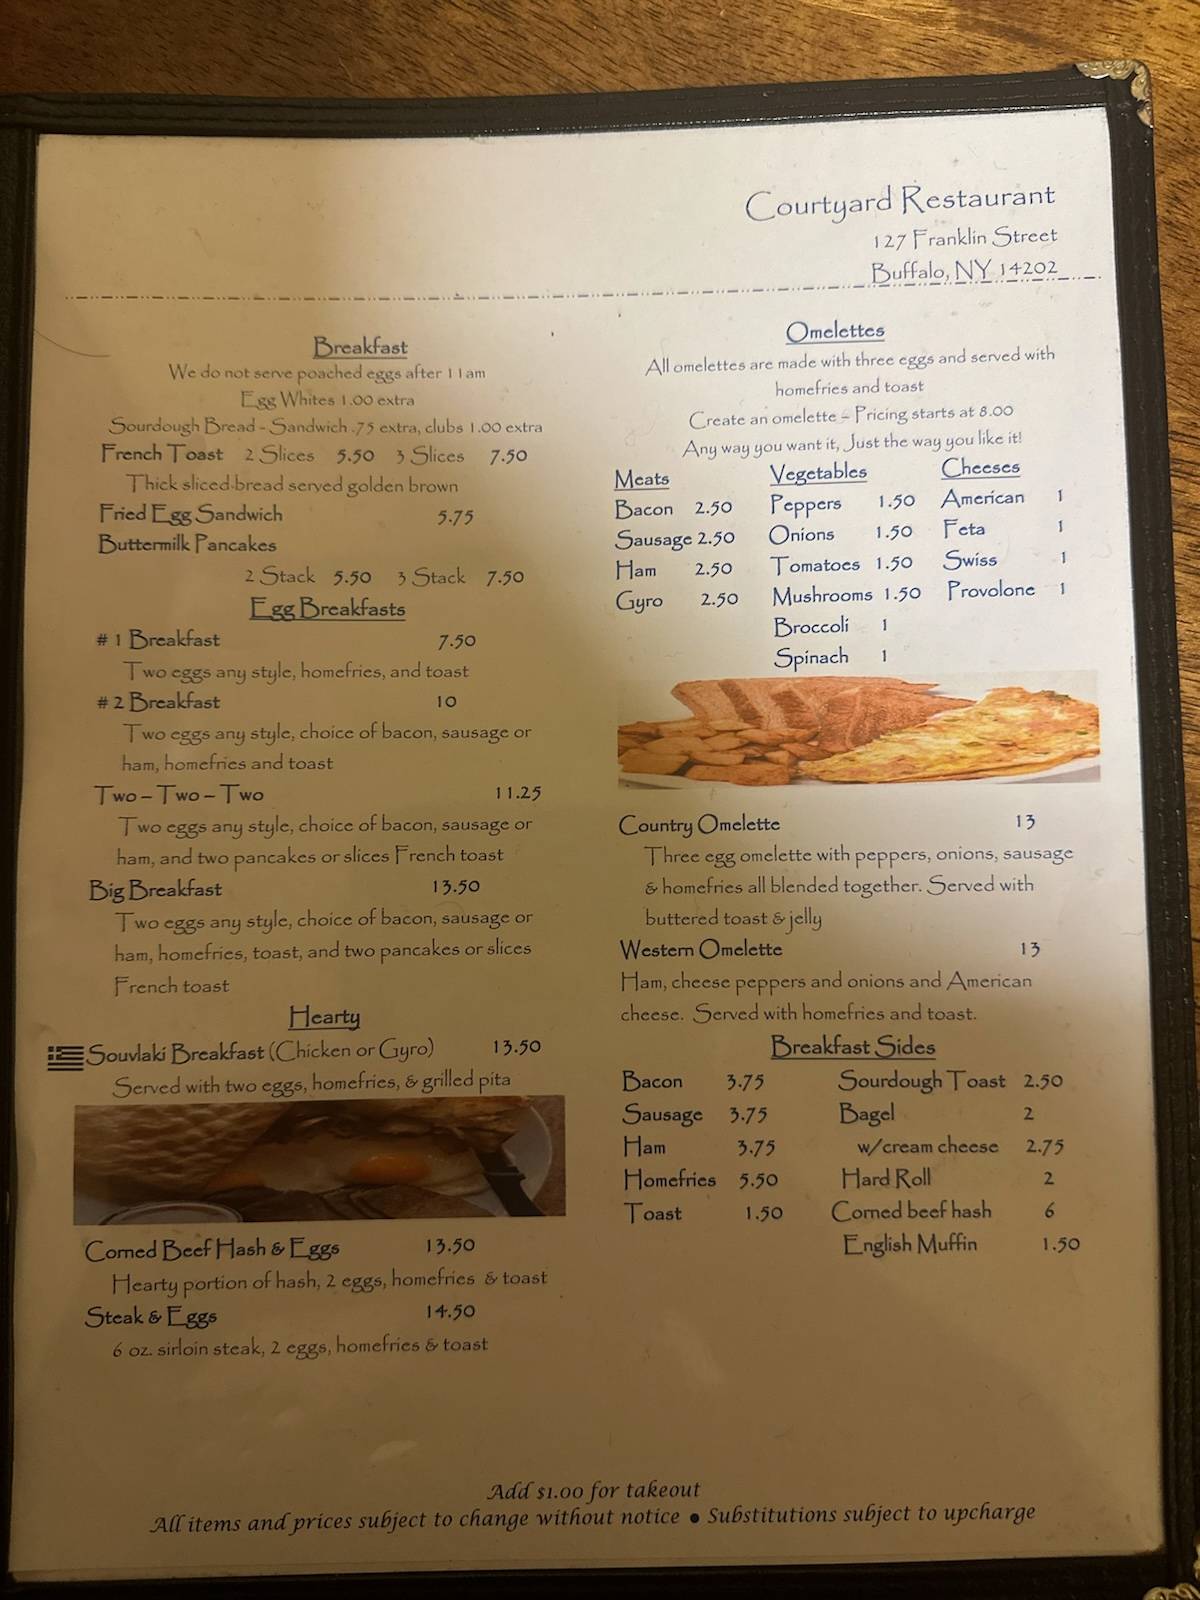 Courtyard Restaurant
127 Franklin Street
Buffalo, NY 14202
Breakfast
We do not serve poached eggs after 11am
Egg Whites 1.00 extra
Sourdough Bread - Sandwich .75 extra, clubs 1.00 extra
French Toast 2 Slices 5.50 3 Slices 7.50
Thick sliced bread served golden brown
Fried Egg Sandwich 5.75
Buttermilk Pancakes
2 Stack 5.50 3 Stack 7.50
Egg Breakfasts
# 1 Breakfast 7.50
Two eggs any style, homefries, and toast
# 2 Breakfast 10
Two eggs any style, choice of bacon, sausage or
ham, homefries and toast
Two – Two – Two 11.25
Two eggs any style, choice of bacon, sausage or
ham, and two pancakes or slices French toast
Big Breakfast 13.50
Two eggs any style, choice of bacon, sausage or
ham, homefries, toast, and two pancakes or slices
French toast
Hearty
Souvlaki Breakfast (Chicken or Gyro) 13.50
Served with two eggs, homefries, & grilled pita
Corned Beef Hash & Eggs 13.50
Hearty portion of hash, 2 eggs, homefries & toast
Steak & Eggs 14.50
6 oz. sirloin steak, 2 eggs, homefries & toast
Omelettes
All omelettes are made with three eggs and served with
homefries and toast
Create an omelette – Pricing starts at 8.00
Any way you want it, Just the way you like it!
Meats Vegetables Cheeses
Bacon 2.50 Peppers 1.50 American 1
Sausage 2.50 Onions 1.50 Feta 1
Ham 2.50 Tomatoes 1.50 Swiss 1
Gyro 2.50 Mushrooms 1.50 Provolone 1
Broccoli 1
Spinach 1
Country Omelette 13
Three egg omelette with peppers, onions, sausage
& homefries all blended together. Served with
buttered toast & jelly
Western Omelette 13
Ham, cheese peppers and onions and American
cheese. Served with homefries and toast.
Breakfast Sides
Bacon 3.75 Sourdough Toast 2.50
Sausage 3.75 Bagel 2
Ham 3.75 w/cream cheese 2.75
Homefries 5.50 Hard Roll 2
Toast 1.50 Corned beef hash 6
English Muffin 1.50
Add $1.00 for takeout
All items and prices subject to change without notice ● Substitutions subject to upcharge